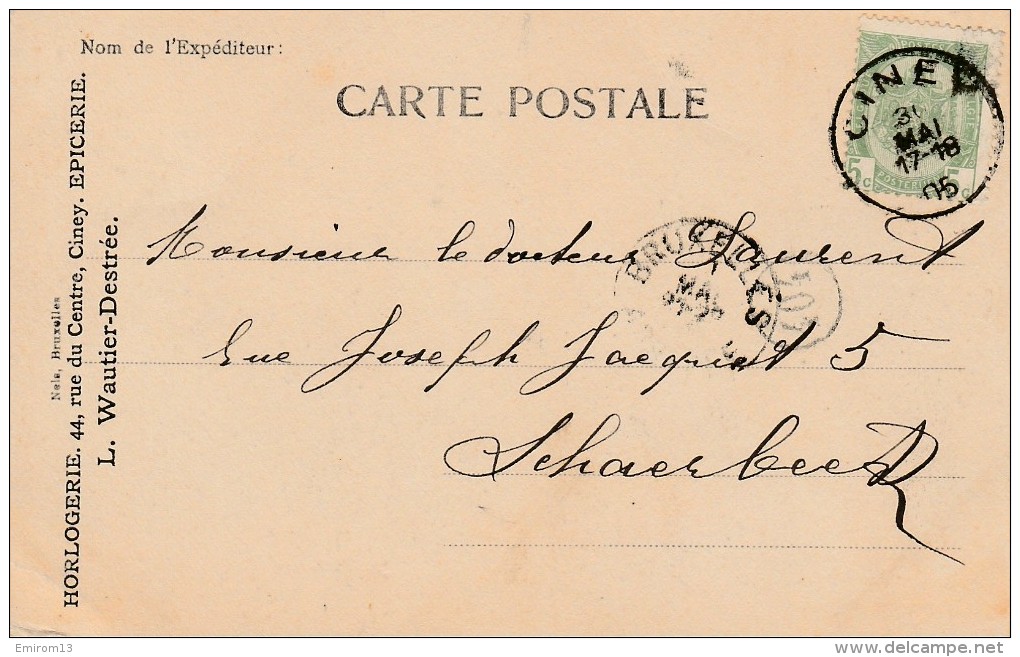 Nom de l'Expéditeur:
CARTE POSTALE
CINEY
31
MAI
17-18
05
5c
5c
Monsieur le docteur Laurent
BRUXELLES
MAI
Rue Joseph Jacquet 5
Schaerbeek
Nels, Bruxelles
HORLOGERIE. 44, rue du Centre, Ciney. EPICERIE.
L. Wautier-Destrée.
Emirom13
www.delcampe.net